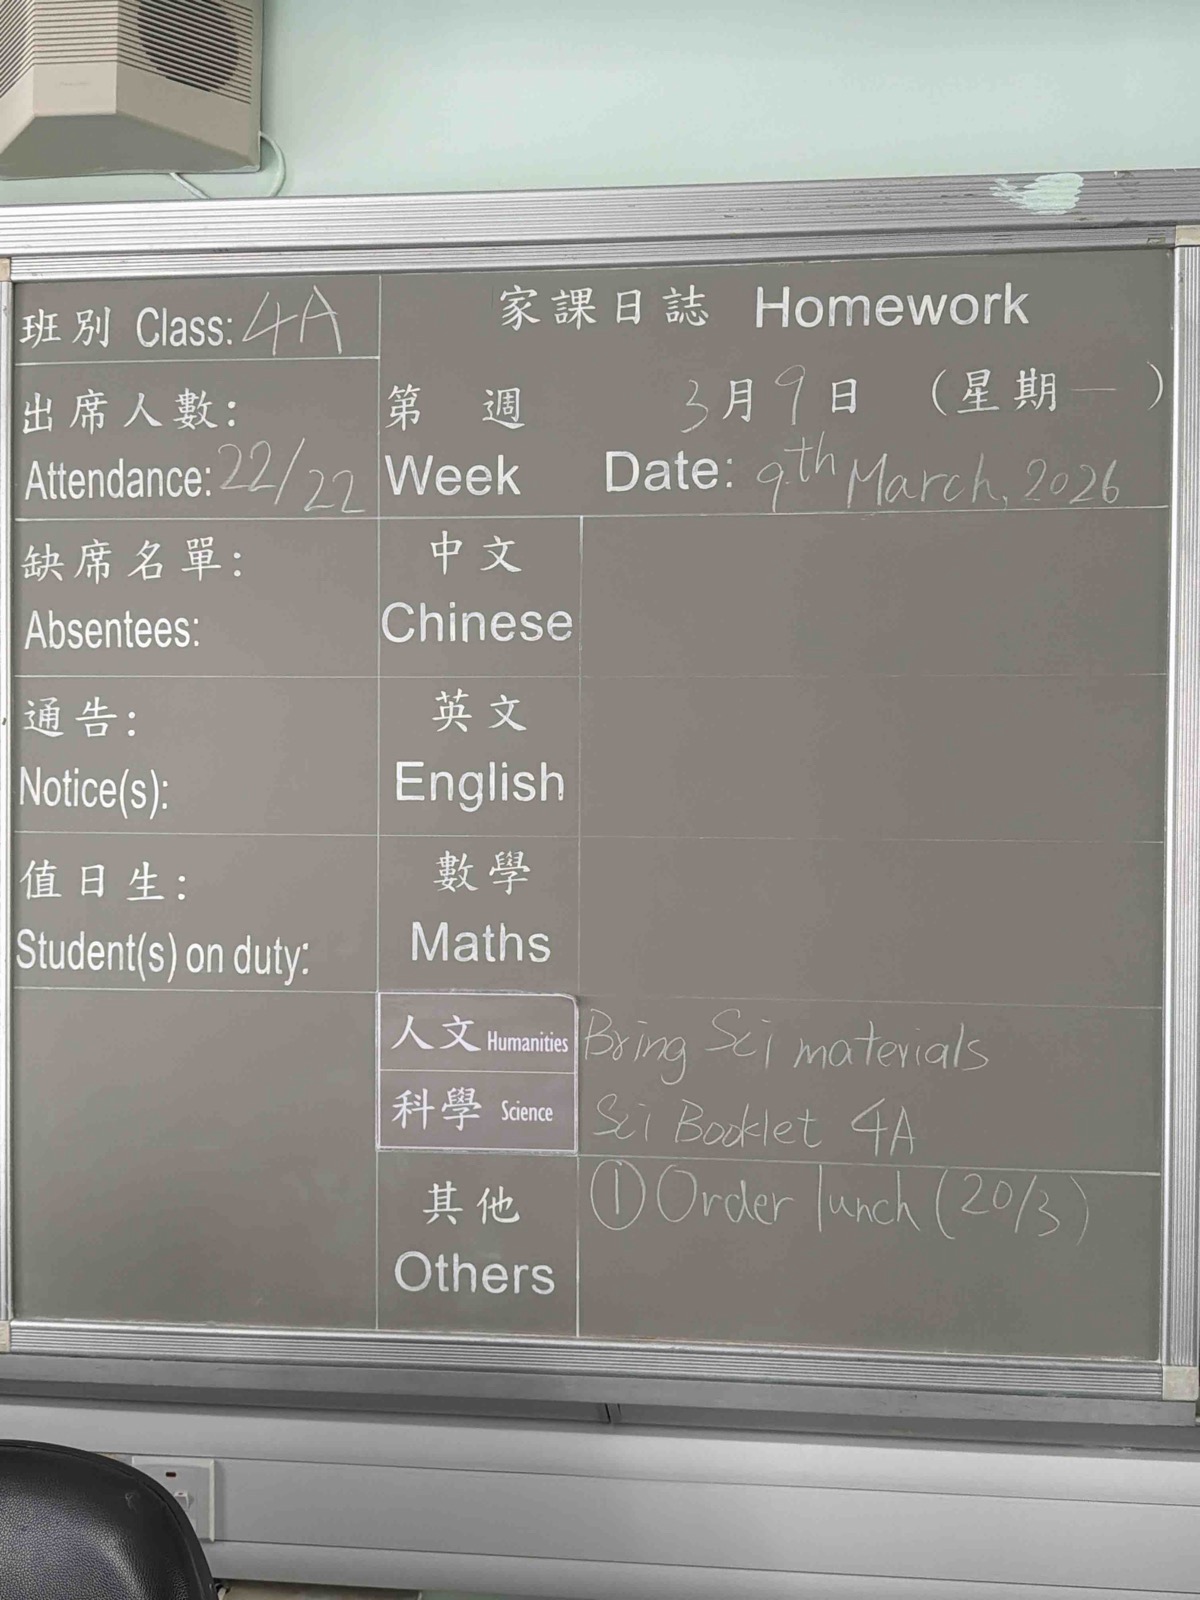 班別 Class: 4A
家課日誌 Homework
出席人數:
Attendance: 22/22
第 週 3月9日 (星期一)
Week Date: 9th March, 2026
缺席名單:
Absentees:
中文
Chinese
通告:
Notice(s):
英文
English
值日生:
Student(s) on duty:
數學
Maths
人文 Humanities Bring Sci materials
科學 Science Sci Booklet 4A
其他 ① Order lunch (20/3)
Others